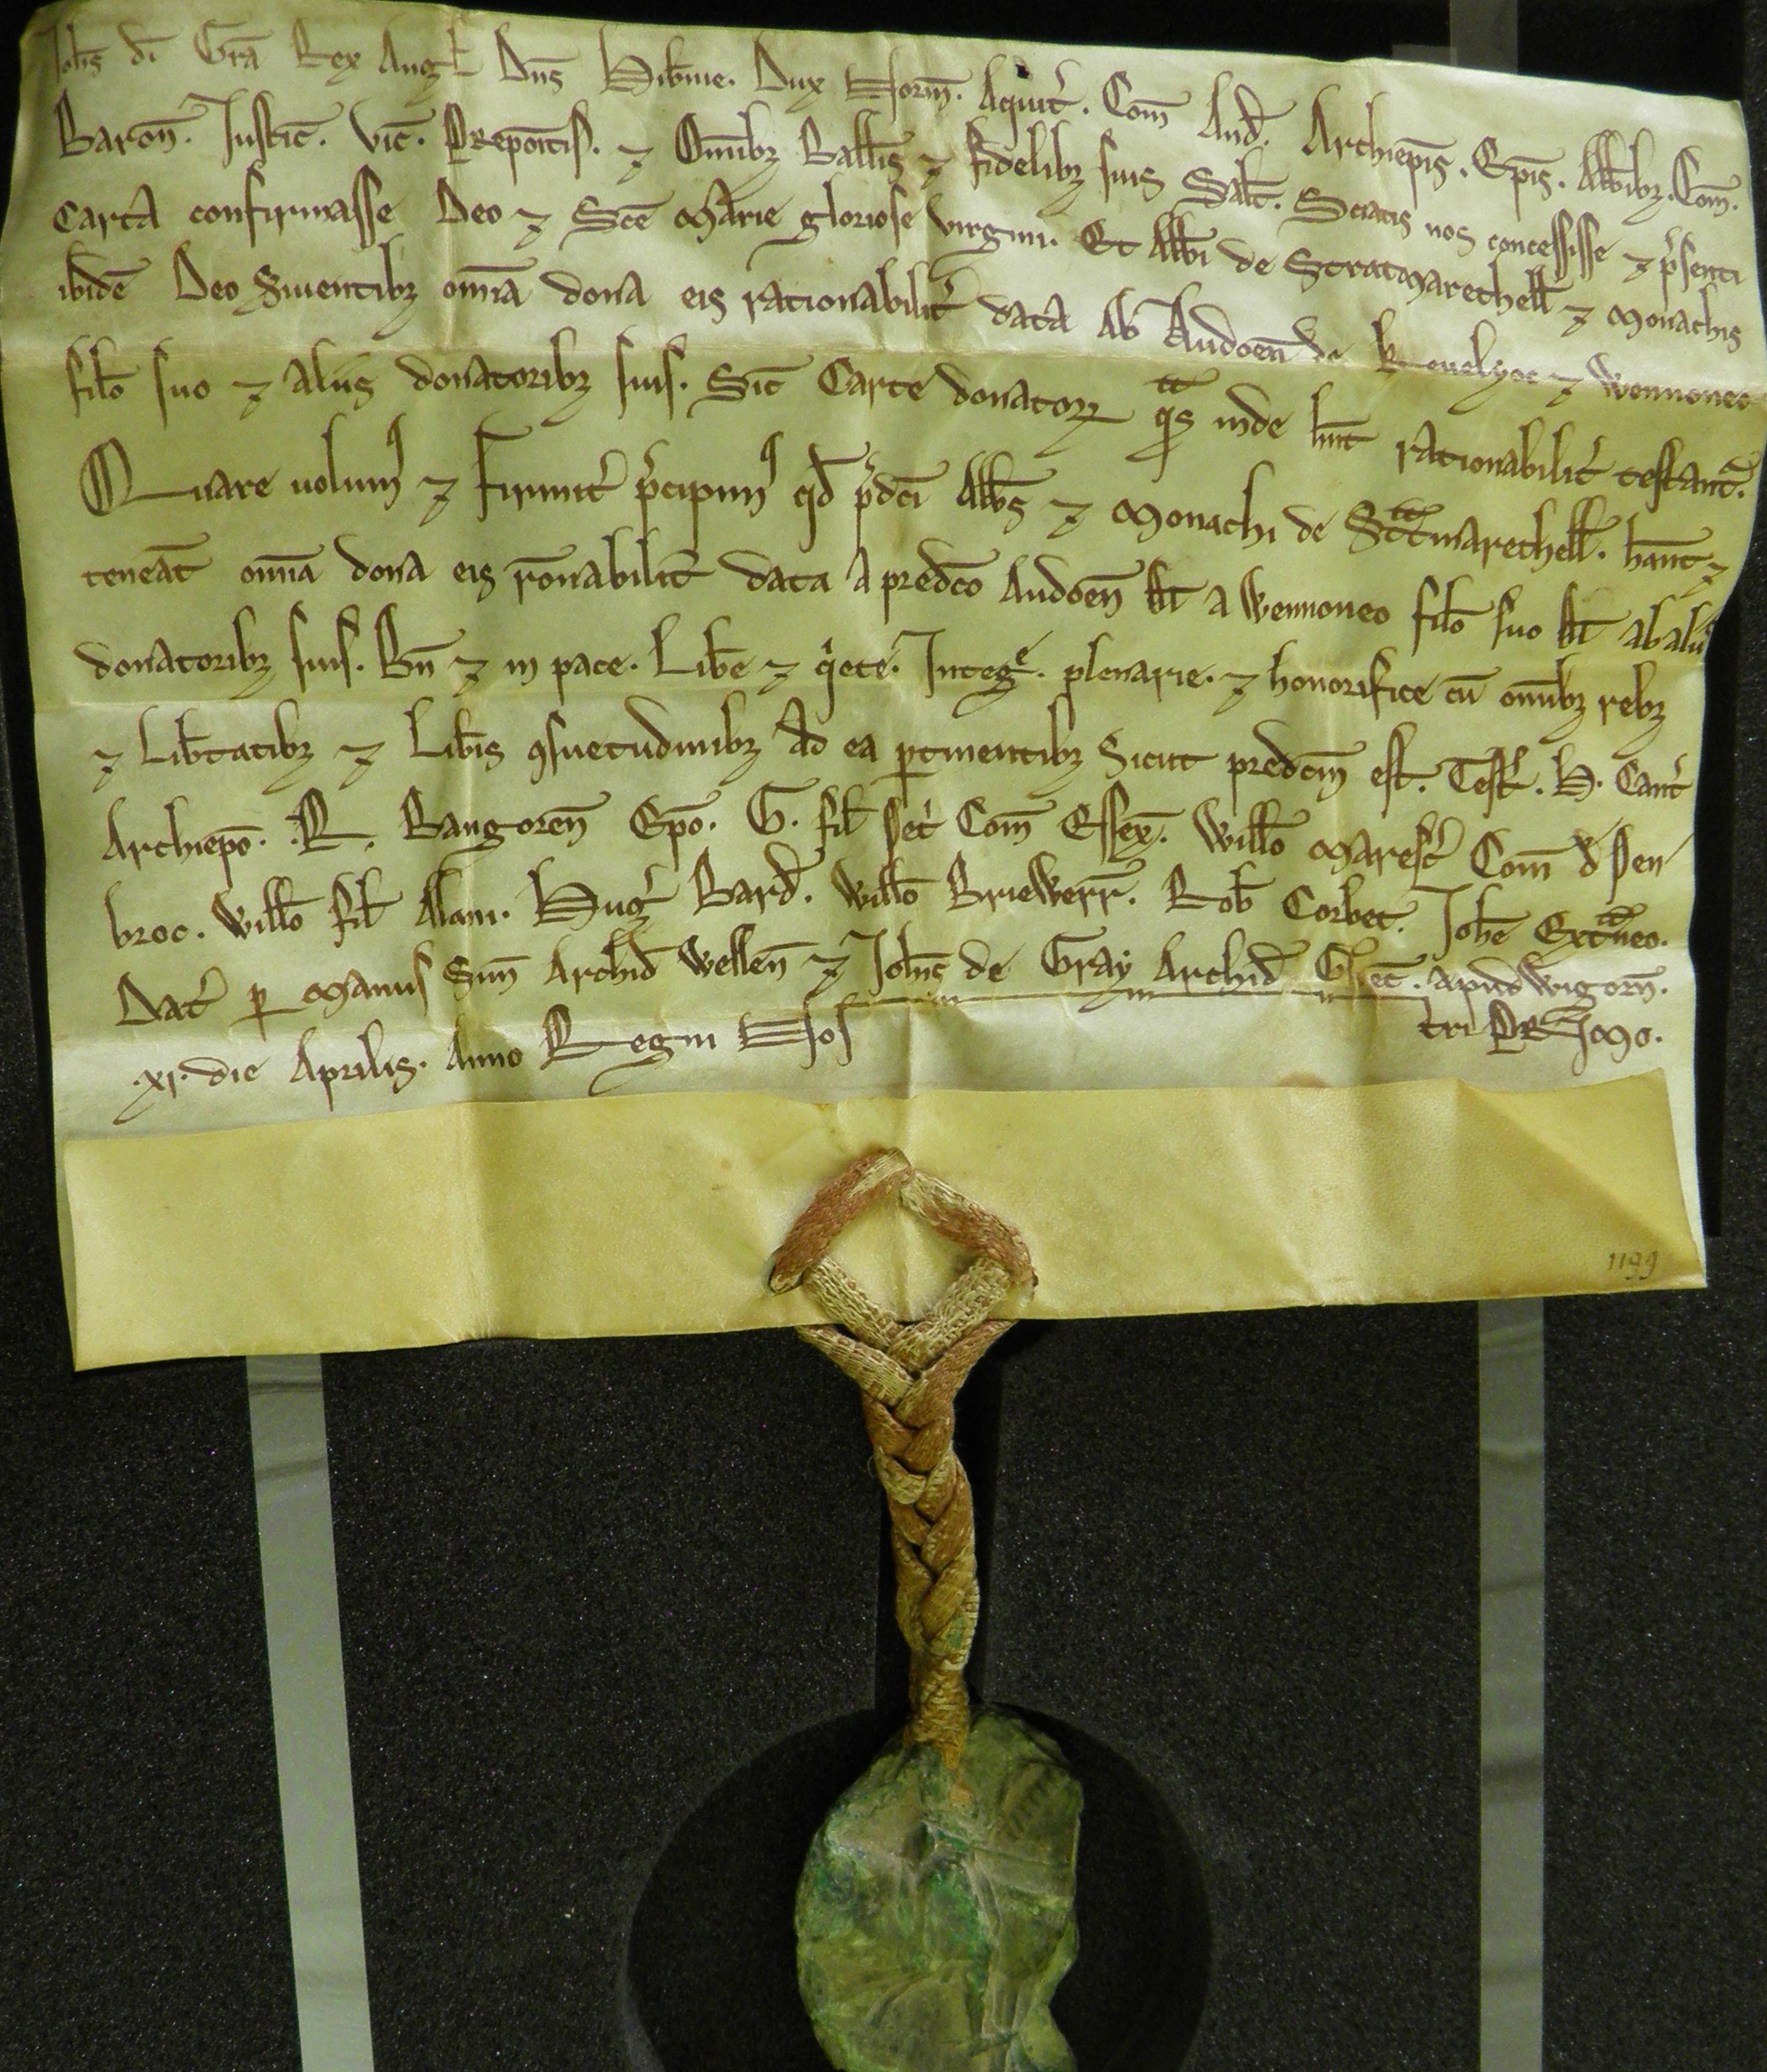 Joh̄s dī Grā Rex Angł Dn̄s Hib̄nie. Dux Norm̄. Aquit̄. Com̄ And̄. Archiep̄is. Ep̄is. Abb̄ibꝫ. Com̄.
Baron̄. Justic̄. Vic̄. Prepoitis. ⁊ Om̄ibꝫ Ball̄is ⁊ fidelibꝫ suis Salt̄. Sciatis nos concessisse ⁊ p̄senti
Carta confirmasse Deo ⁊ Sc̄e Marie gloriose virgini. Et Abb̄i de Stratmarchell̄ ⁊ monachis
ibidē Deo ẜuientibꝫ om̄ia dona eis rationabilit̄ data Ab Audoen̄ de Keuelyoc ⁊ Wennoneo
fil̄o suo ⁊ aliis donatoribꝫ suis. Sic̄ Carte donatorꝝ qͣs inde hn̄t rationabilit̄ testant̄.
Quare uolumꝰ ⁊ firmit̄ p̄cipimꝰ qd̄ p̄dc̄i Abb̄s ⁊ monachi de Stͣtmarchell̄. hān̄t ⁊
teneāt om̄ia dona eis rōnabilit̄ data a predc̄o Audoen̄ & a Wennoneo fil̄o suo & ab aliis
donatoribꝫ suis. Bn̄ ⁊ in pace. Lib̄e ⁊ qͥete. Integᵉ. plenarie. ⁊ honorifice cū om̄ibꝫ rebꝫ
⁊ Lib̄tatibꝫ ⁊ Lib̄is ꝯsuetudinibꝫ Ad ea ꝑtinentibꝫ Sicut predc̄m est. Test̄. H. Cant̄
Archiep̄o. R. Bangoren̄ Ep̄o. G. fil̄ Pet̄ Com̄ Essex̄. Will̄o Maresc̄ Com̄ d̄ Pen
broc. Will̄o fil̄ Alani. Huḡ Bard̄. Will̄o Briewerr̄. Rob̄ Corbet. Joh̄e Extͣneo.
Dat̄ ꝑ Manus Sim̄ Archid̄ Wellen̄ ⁊ Joh̄is de Gray Archid̄ Gloec̄. apud Wigorn̄.
.xi. die Aprilis. Anno Regni Nos tri PRImo.
1199